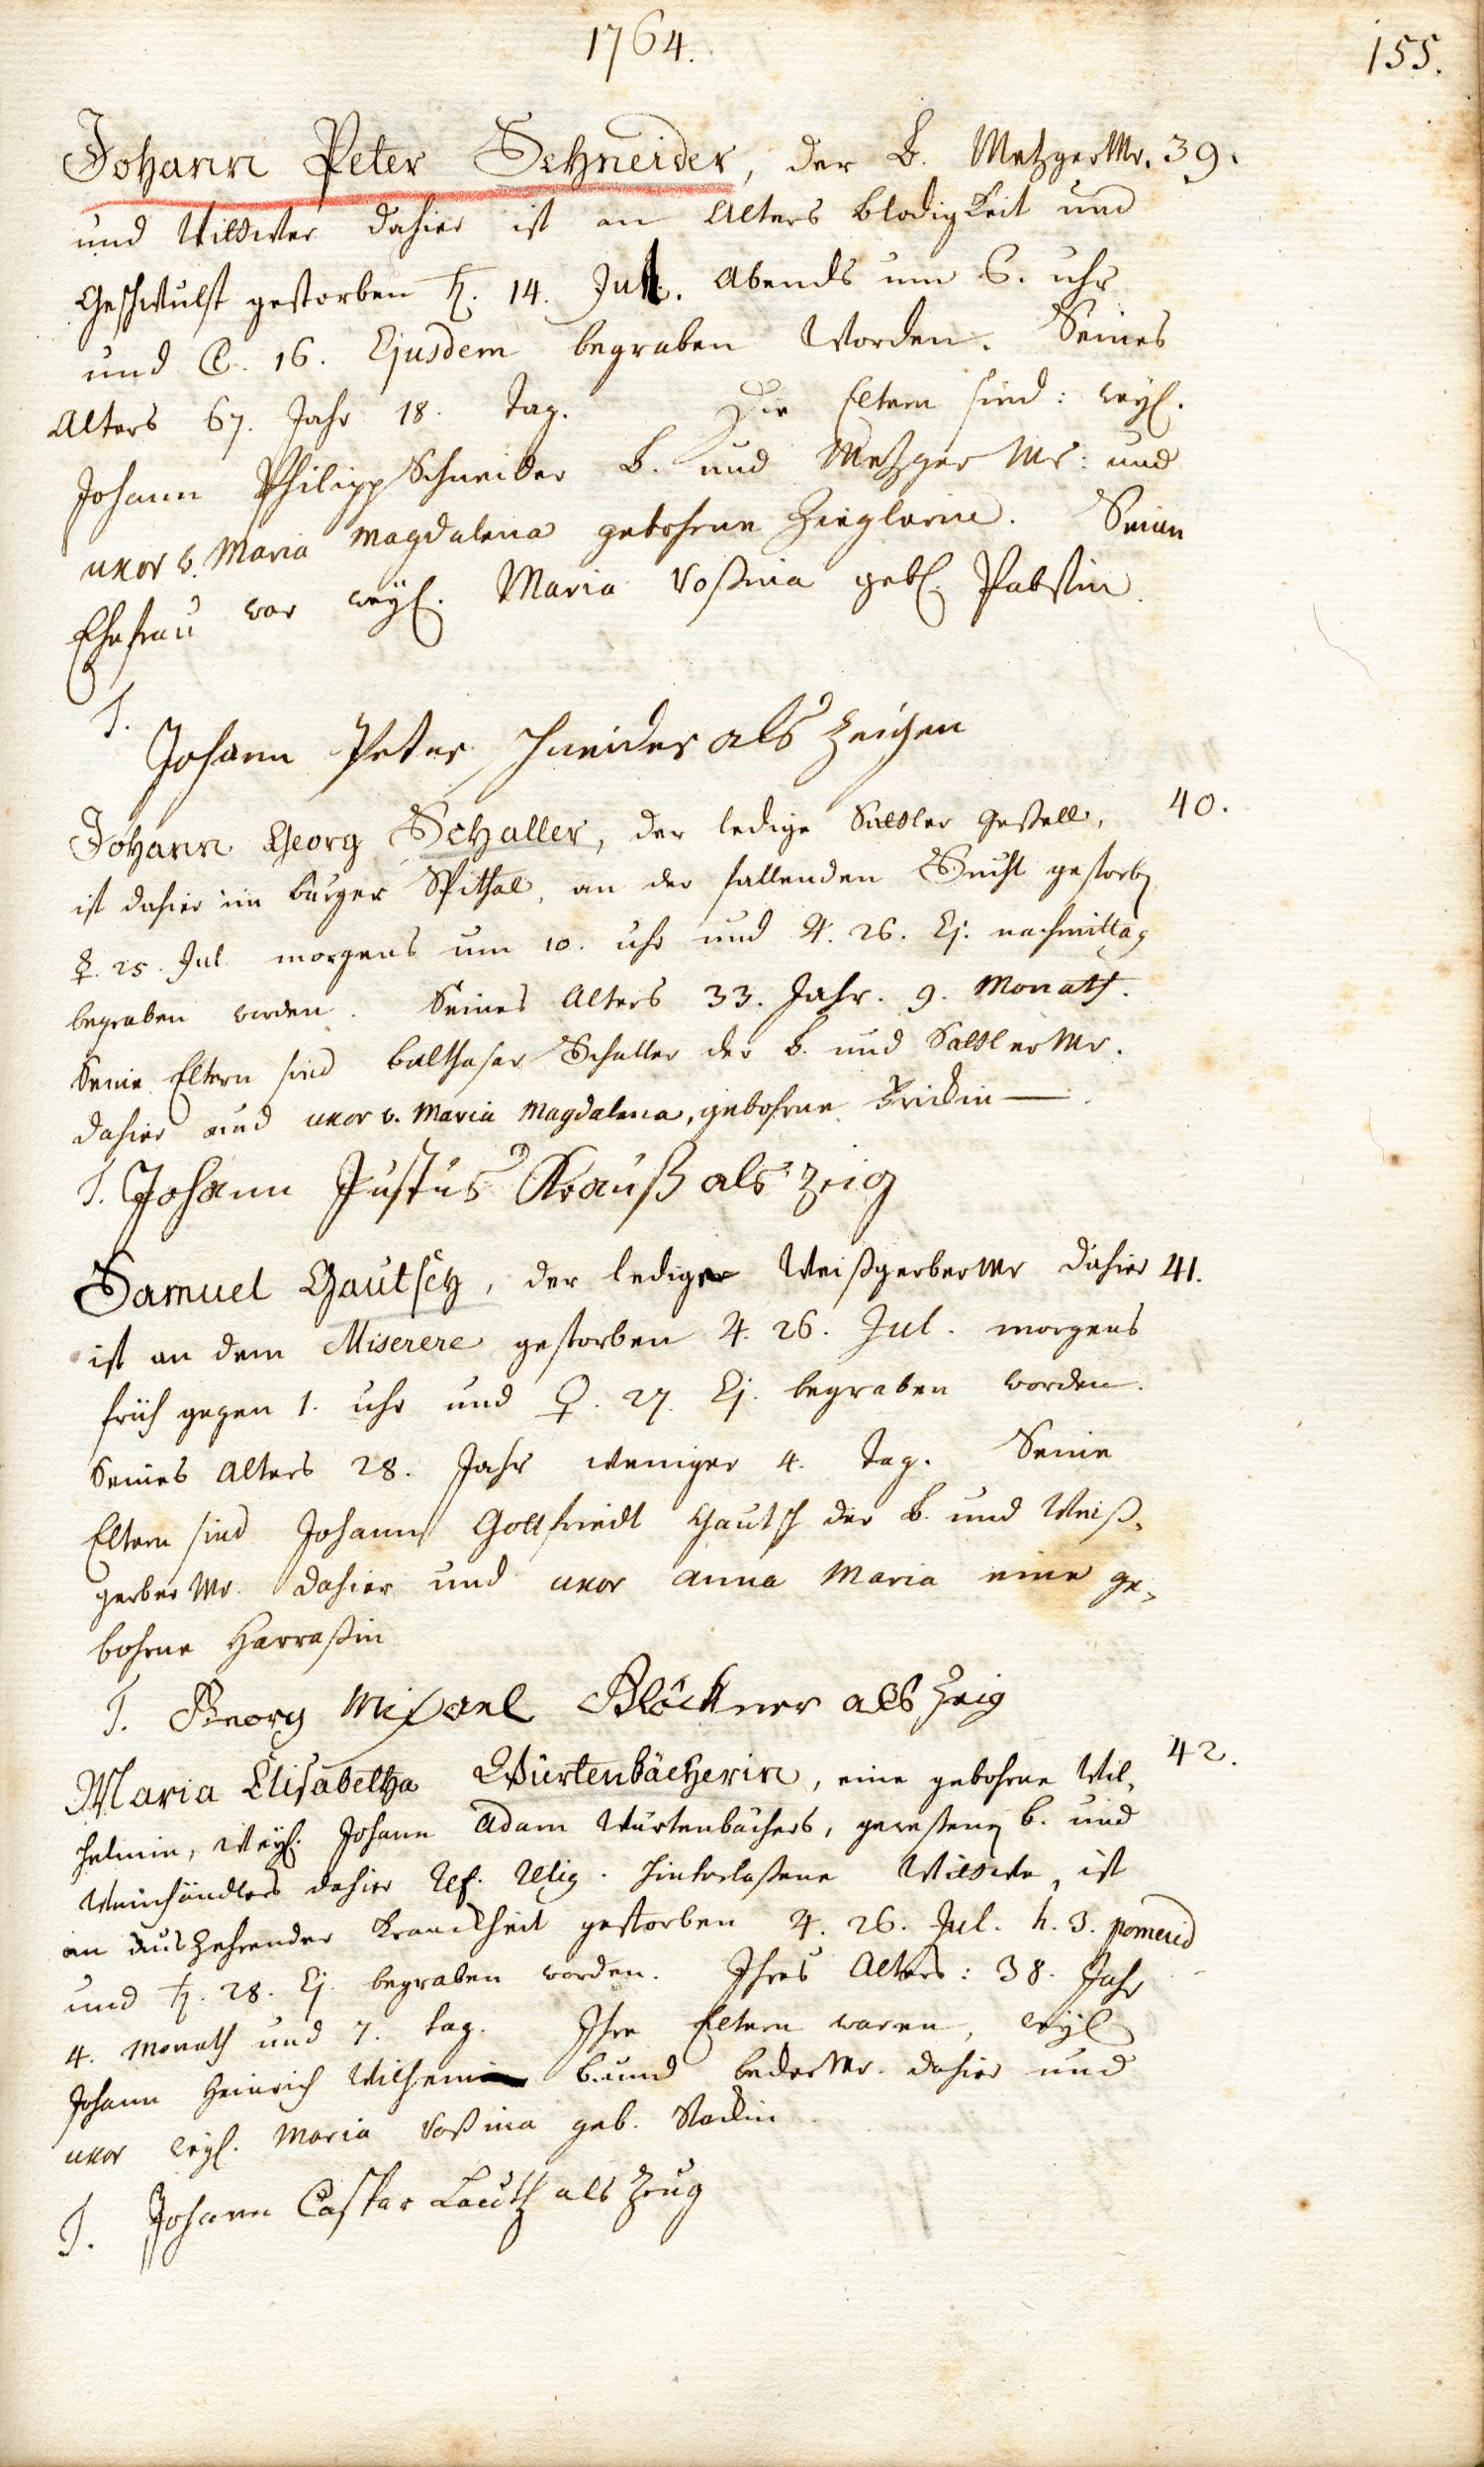 1764.
155.
Johann Peter Schneider, der B. MetzgerMr. 39.
und Wittwer dahier ist an Alters Blödigkeit und
Geschwulst gestorben ♄. 14. Jul. Abends um 6. uhr
und ☾. 16. Ejusdem begraben worden. Seines
Alters 67. Jahr 18. tag. Die Eltern sind: weyl.
Johann Philipp Schneider B. und Metzger Mr: und
uxor v. Maria Magdalena gebohrne Zieglerin. Seine
Ehefrau war weyl. Maria Rosina gebl. Pabstin.
T.
Johann Peter Schneider als Zeigen
Johann Georg Schaller, der ledige Sattler gesell, 40.
ist dahier im burger Spithal, an der fallenden Sucht gestorben
☿. 25. Jul. morgens um 10. uhr und ♃. 26. Ej. nachmittag
begraben worden. Seines Alters 33. Jahr. 9. Monath.
Seine Eltern sind Balthasar Schaller der B. und SattlerMr.
dahier und uxor v. Maria Magdalena, gebohrne
T. Johann Justus Krauß als Zeig
Samuel Gautsch, der lediger WeißgerberMr dahier 41.
ist an dem Miserere gestorben ♃. 26. Jul. morgens
früh gegen 1. uhr und ♀. 27. Ej. begraben worden.
Seines Alters 28. Jahr weniger 4. tag. Seine
Eltern sind Johann Gottfriedt Gautsch der B. und Weiß-
gerber Mr. dahier und uxor Anna Maria eine ge-
bohrne Harraßin
T. Georg Michael Blöckner als Zeig
Maria Elisabetha Würtenbächerin, eine gebohrne Wil- 42.
helmin, weyl. Johann Adam Würtenbächers, gewesenen B. und
Weinhändlers dahier Ref. Relig. hinterlaßene Wittwe, ist
an auszehrender Kranckheit gestorben ♃. 26. Jul. h. 3. pomerid
und ♄. 28. Ej. begraben worden. Ihres Alters: 38. Jahr
4. Monath und 7. tag. Ihre Eltern waren, weyl
Johann Heinrich Wilhem B. und bederMr. dahier und
uxor weyl. Maria Rosina geb.
T. Johann Caspar Lautz als Zeug